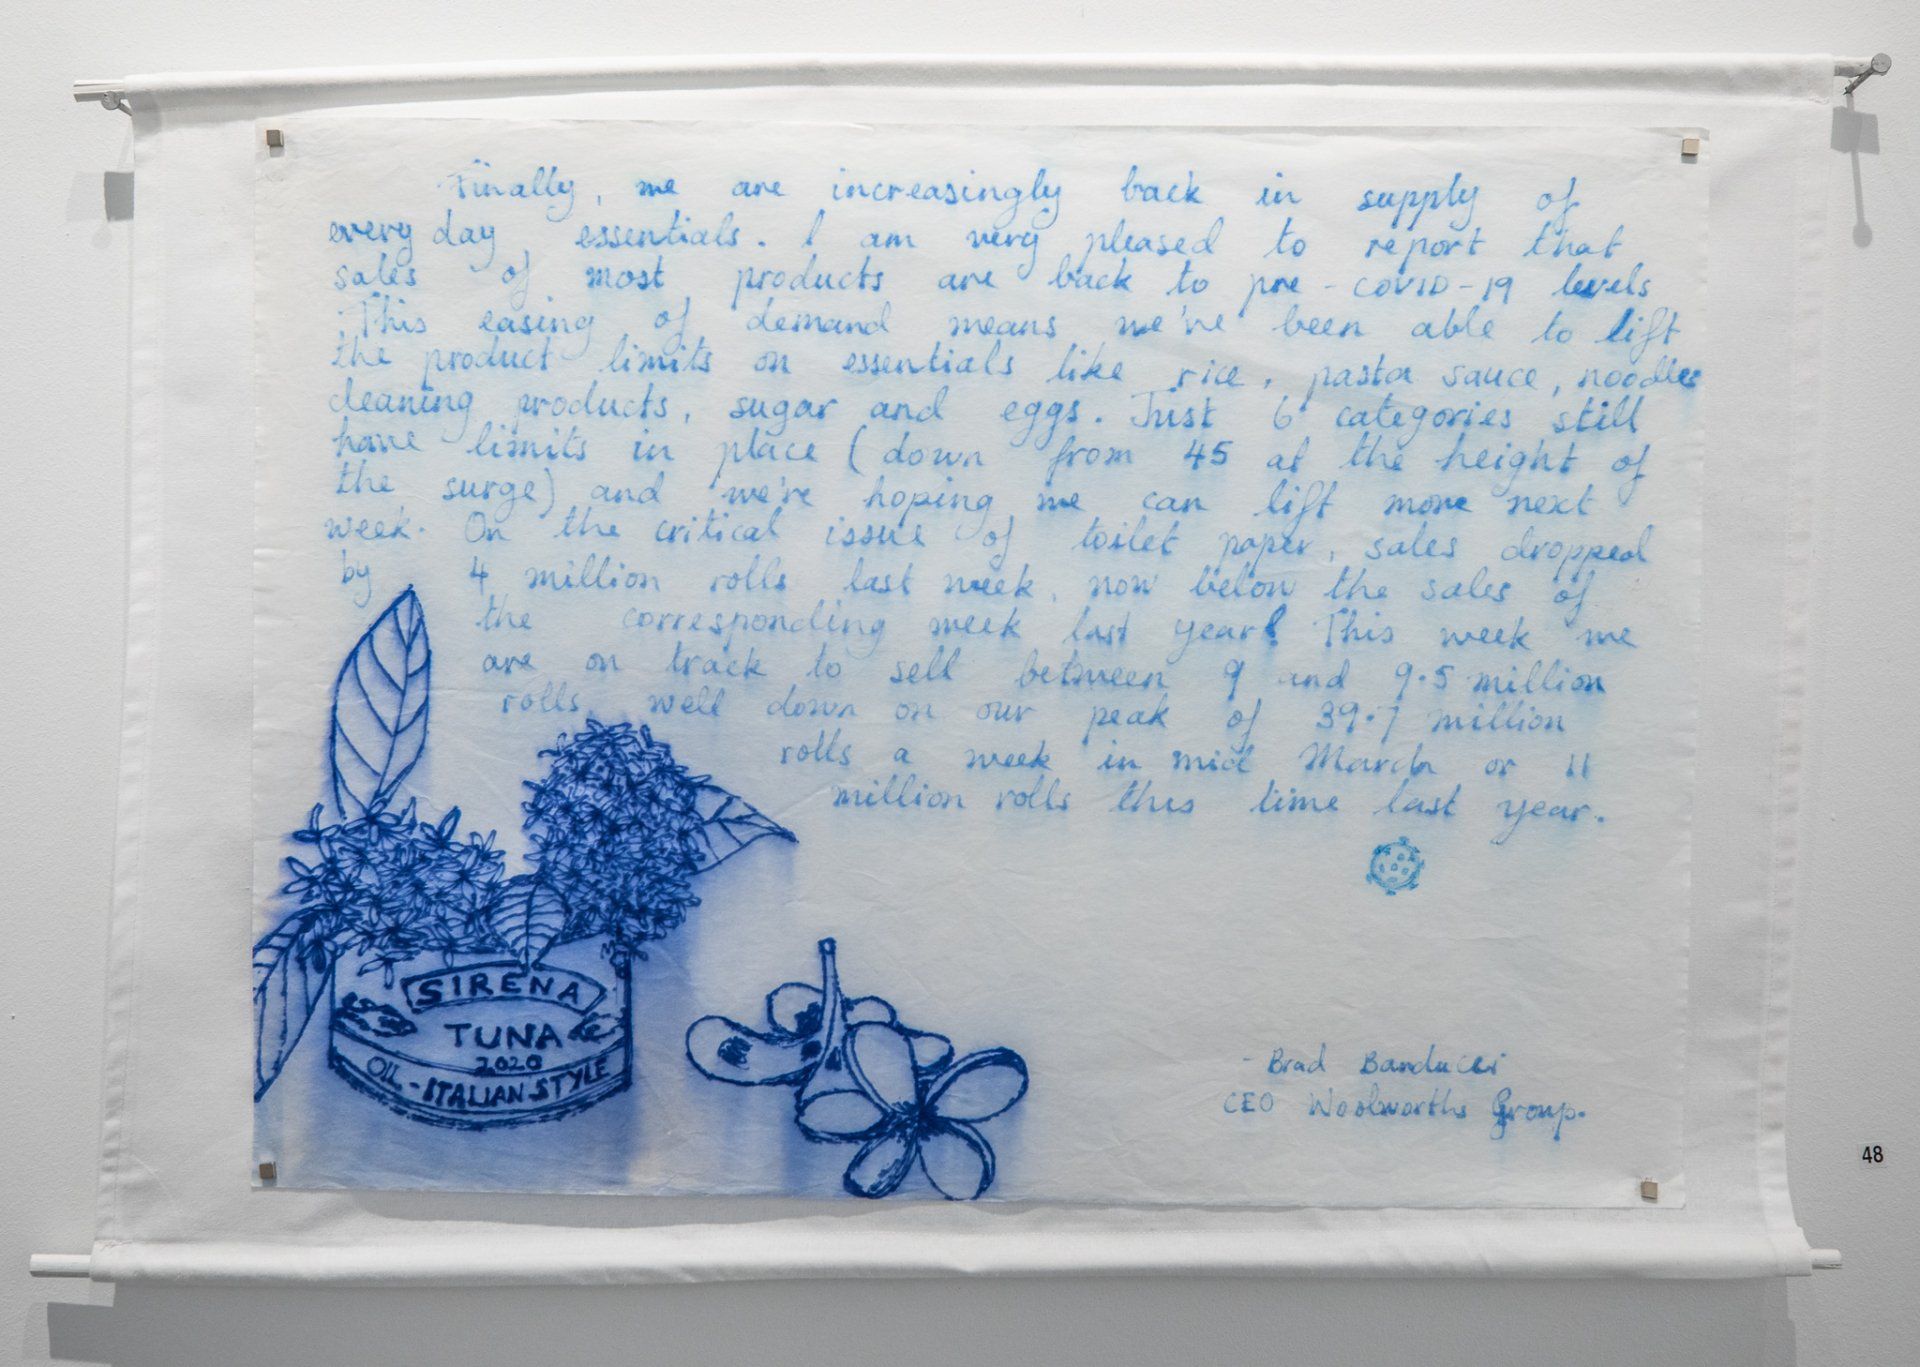 Finally, we are increasingly back in supply of
every day essentials. I am very pleased to report that
sales of most products are back to pre-COVID-19 levels
This easing of demand means we've been able to lift
the product limits on essentials like rice, pasta sauce, noodles
cleaning products, sugar and eggs. Just 6 categories still
have limits in place (down from 45 at the height of
the surge) and we're hoping we can lift more next
week. On the critical issue of toilet paper, sales dropped
by 4 million rolls last week, now below the sales of
the corresponding week last year! This week we
are on track to sell between 9 and 9.5 million
rolls, well down on our peak of 39.7 million
rolls a week in mid March or 11
million rolls this time last year.
SIRENA
TUNA
2020
OIL-ITALIAN STYLE
- Brad Banducci
CEO Woolworths Group.
48